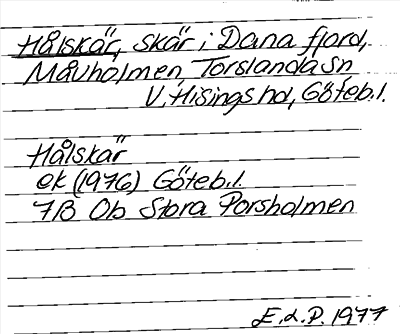 Hålskär, skär i Dana fjord,
Måvholmen, Torslanda sn,
V. Hisings hd, Göteb.l.
Hålskär
ek (1976) Göteb.l.
7B Ob Stora Porsholmen
E.L.P. 1977